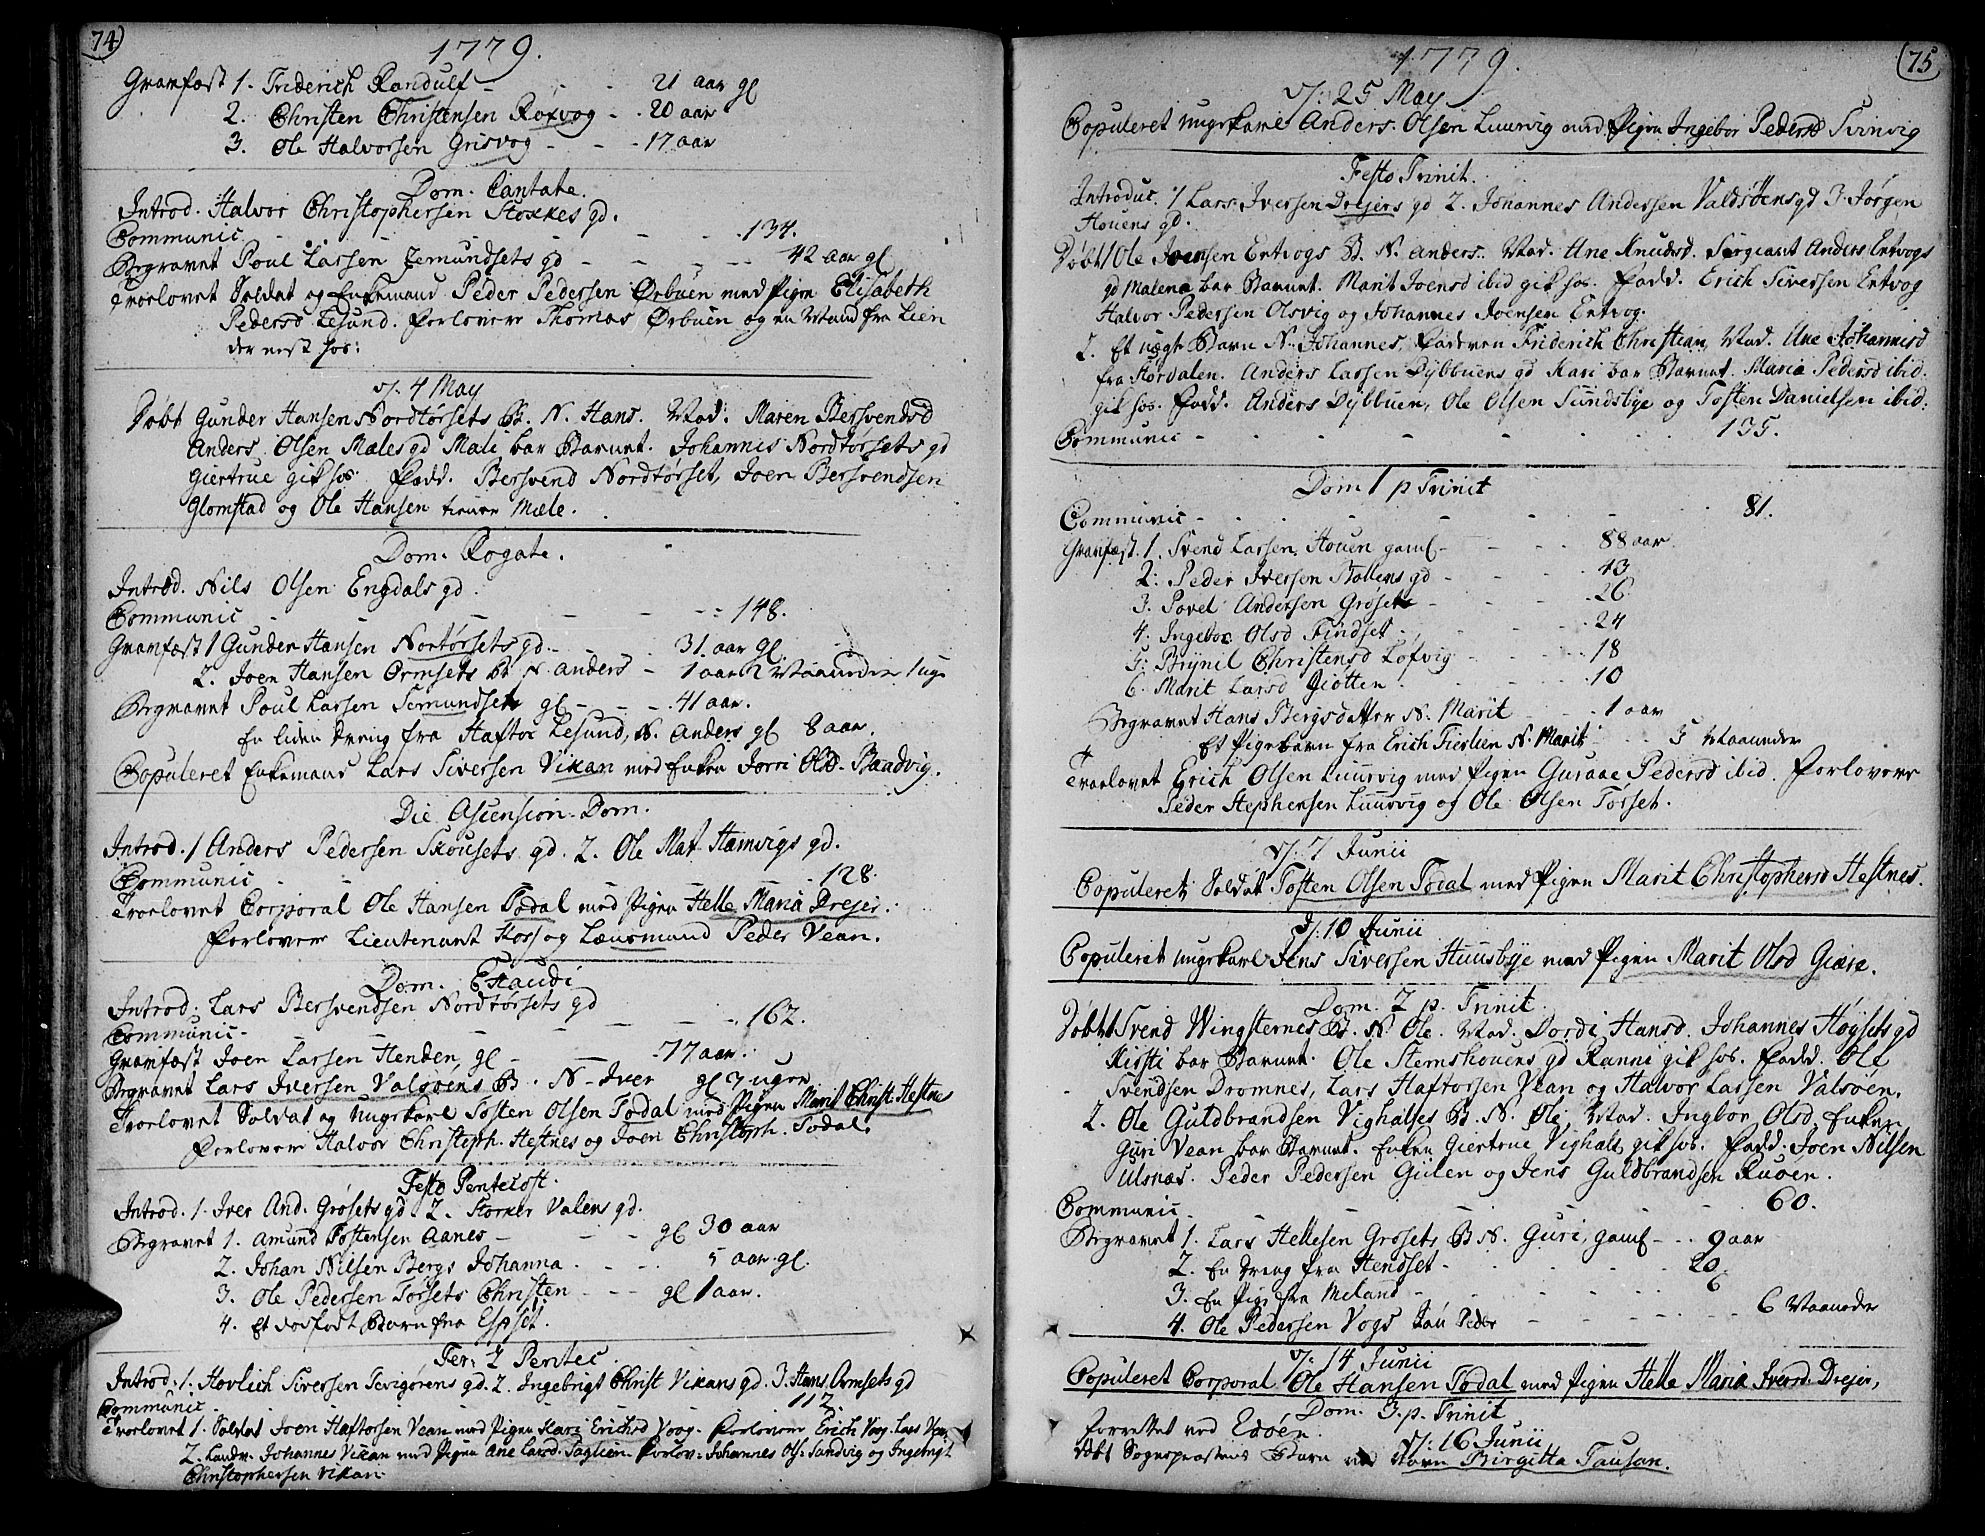 74
1779.
Gravfæst 1. Friderich Randulf - - - 21 aar gl
2. Christen Christensen Roxvog - - 20 aar
3. Ole Halvorsen Grisvog - - - 17 aar
Dom. Cantate.
Introd. Halvor Christophersen Stokkes gd.
Communic - - - - - 134.
Begravet Poul Larsen Semundsets gd - - - - 42 aar gl
Troelovet Soldat og Enkemand Peder Pedersen Ørbuen med Pigen Elisabeth
Pedersd Lesund. Forlovere Thomas Ørbuen og en Mand fra Lien
der nest hos:
d/: 4 May
Døbt Gunder Hansen Nordtørsets B. N. Hans. Mod. Maren Bersvendsd
Anders Olsen Mæles gd Mali bar Barnet. Johannis Nordtørsets gd
Giertrue gik hos. Fadd. Bersvend Nordtørset, Joen Bersvendsen
Glomstad og Ole Hansen Mæle.
Dom. Rogate.
Introd. Nils Olsen Engdals gd.
Communic - - - - - 148.
Gravfæst 1 Gunder Hansen Nortørsets gd. - - - 31 aar gl.
2. Joen Hansen Ormsets B. N. Anders - 1 aar 2 Maaneder 1 uge
Begravet Poul Larsen Semundset gl - - - 41 aar.
En liden Dreng fra Haftor Lesund, N. Anders gl 8 aar.
Copuleret Enkemand Lars Siversen Vikan med Enken Jorri Olsd. Baadvig.
Die Ascension. Dom.
Introd. 1 Anders Pedersen Skousets gd. 2. Ole Mat. Hamvigs gd.
Communic - - - - - 128.
Troelovet Corporal Ole Hansen Todal med Pigen Helle Maria Drejer.
Forlovere Lieutenant Hoss og Lænsmand Peder Vean.
Dom. Exaudi
Introd. Lars Bersvendsen Nordtørsets gd
Communic - - - - - 162.
Gravfæst Joen Larsen Henden, gl - - 77 aar.
Begravet Lars Iversen Valsøens B. N. Iver gl 3 uger
Troelovet Soldat og Ungekarl Tosten Olsen Todal med Pigen Marit Christ. Hestnes
Forlovere Halvor Christoph. Hestnes og Joen Christoph. Todal.
Festo Pentecost.
Introd. 1. Iver And. Grøsets gd 2. Storker Valens gd.
Begravet 1. Amund Tostensen Aanes - - - gl 30 aar
2. Johan Nilsen Bergs Johanna - - - 5 aar gl.
3. Ole Pedersen Torsets Christen - - - gl 1 aar.
4. Et dødfødt Barn fra Espset.
Fer: 2 Pentec.
Introd. 1. Hovlich Siversen Tevigørens gd. 2. Ingebrigt Christ Vikans gd. 3. Hans Ormsets gd
Communic - - - - - 112
Troelovet 1. Soldat Joen Haftorsen Vean med Pigen Kari Erichsd Voog. Forlovere Erich Voog. Lars Vean
2. Landv. Johannes Vikan med Pigen Ane Larsd. Taglien. Forlov. Johannes Ols: Sandvig og Ingebrigt
Christophersen Vikan.
75
1779.
d/: 25 May
Copuleret Ungekarl Anders Olsen Luurvig med Pigen Ingebor Pedersd Svinvig
Festo Trinit.
Introduc. 1/ Lars Iversen Drejers gd 2. Johannes Andersen Valdstens gd 3. Jørgen
Houens gd.
Døbt 1 Ole Joensen Entvogs B. N. Anders. Mod. Ane Knudsd. Sergeant Anders Entvogs
gd Malena bar Barnet. Marit Joensd ibid gik hos. Fadd. Erich Siversen Entvog
Halvor Pedersen Olsvig og Johannes Joensen Entvog.
2. Et uægte Barn N. Johannes, Faderen Friderich Christian, Mod. Ane Johannisd
fra Hordalen. Anders Larsen Dybbuens gd Kari bar Barnet. Maria Pedersd ibid.
gik hos. Fadd. Anders Dybbuen, Ole Olsen Sundsbye og Tosten Danielsen ibid.
Communic - - - - - 135.
Dom 1 p Trinit
Communic - - - - - 81.
Gravfæst. 1. Svend Larsen Houen gaml - - - 88 aar.
2. Peder Iversen Stollens gd - - - 43
3. Povel Andersen Grøset - - - 26
4. Ingebor Olsd Findset - - - 24
5. Brynil Christensd Lofvig - - - 18
6. Marit Larsd Giotten - - - 10
Begravet Hans Bergs datter N. Marit - - - 1 aar
Et Pigebarn fra Erich Fieslien N. Marit - - 5 Maaneder
Troelovet Erich Olsen Luurvig med Pigen Guraae Pedersd ibid. Forlovere
Peder Stephensen Luurvig og Ole Olsen Torset.
d/: 7 Junii
Copuleret Soldat Tosten Olsen Todal med Pigen Marit Christophersd Hestnes.
d/: 10 Junii
Copuleret Ungekarl Jens Siversen Huusbye med Pigen Marit Olsd Giære.
Dom. 2 p. Trinit.
Døbt 1 Svend Wingsternes B. N. Ole. Mod. Dordi Hansd. Johannes Høysets gd
Kirsti bar Barnet. Ole Stemshouens gd Ranni gik hos. Fadd. Ole
Svendsen Dromnes, Lars Haftorsen Vean og Halvor Larsen Valsøen.
2. Ole Guldbrandsen Vighalses B. N. Ole. Mod. Ingbor Olsd. Enken
Guri Vean bar Barnet. Enken Giertrue Vighals gik hos. Fadd. Joen Nilsen
Ulsnæs. Peder Pedersen Giilen og Jens Guldbrandsen Ruøen.
Communic - - - - - 60.
Begravet 1. Lars Hellesen Grøsets B. N. Guri, gaml - - 9 aar
2. En Dreng fra Hendset - - - 20
3. En Pige fra Meland - - - 6
4. Ole Pedersen Vogs Søn Peder - - - 6 Maaneder
d/: 14 Junii
Copuleret Corporal Ole Hansen Todal med Pigen Helle Maria Iversd. Drejer,
Dom. 3 p. Trinit
forrettet ved Edøen.
d/: 16 Junii
Døbt Sognepræstens Barn ved Navn Birgitta Tausan.